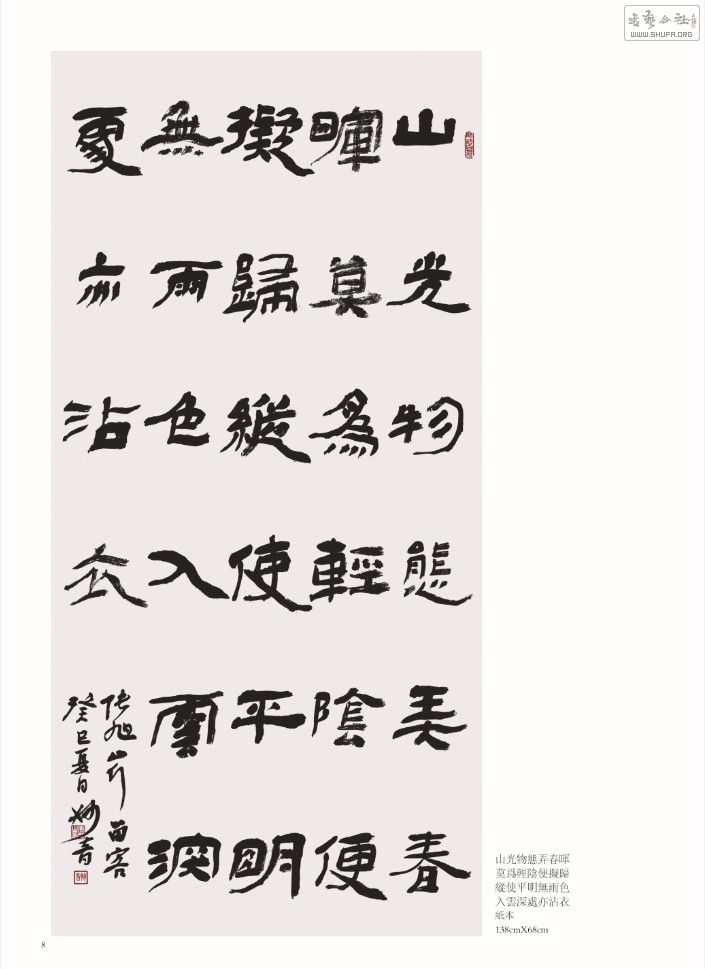 書藝公社
WWW.SHUFA.ORG
山光物態弄春
暉莫爲輕陰便
擬歸縱使平明
無雨色入雲深
處亦沾衣
张旭山行留客
癸巳夏日妙音
山光物態弄春暉
莫爲輕陰便擬歸
縱使平明無雨色
入雲深處亦沾衣
紙本
138cmX68cm
8